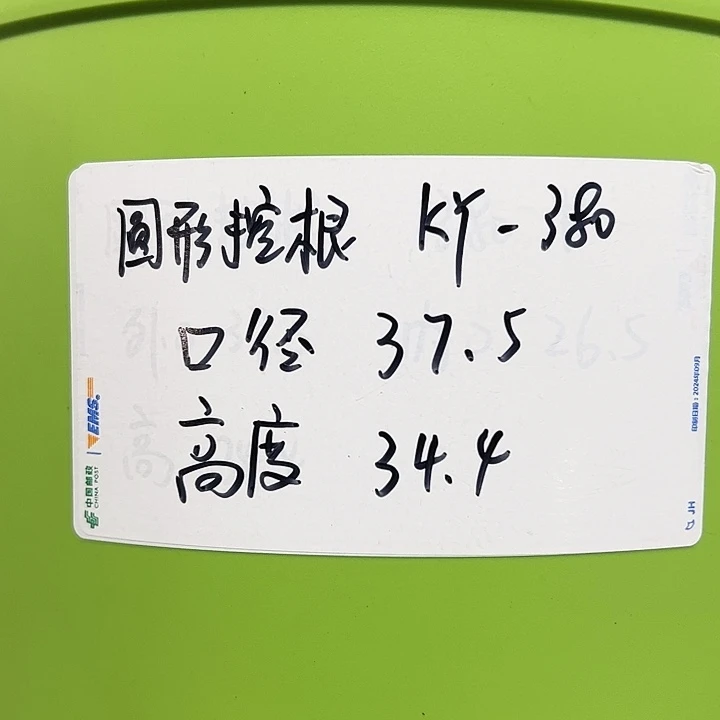 圆形控根 KY-380
口径 37.5
高度 34.4
EMS
中国邮政
CHINA POST
印刷日期:2024年09月
HT